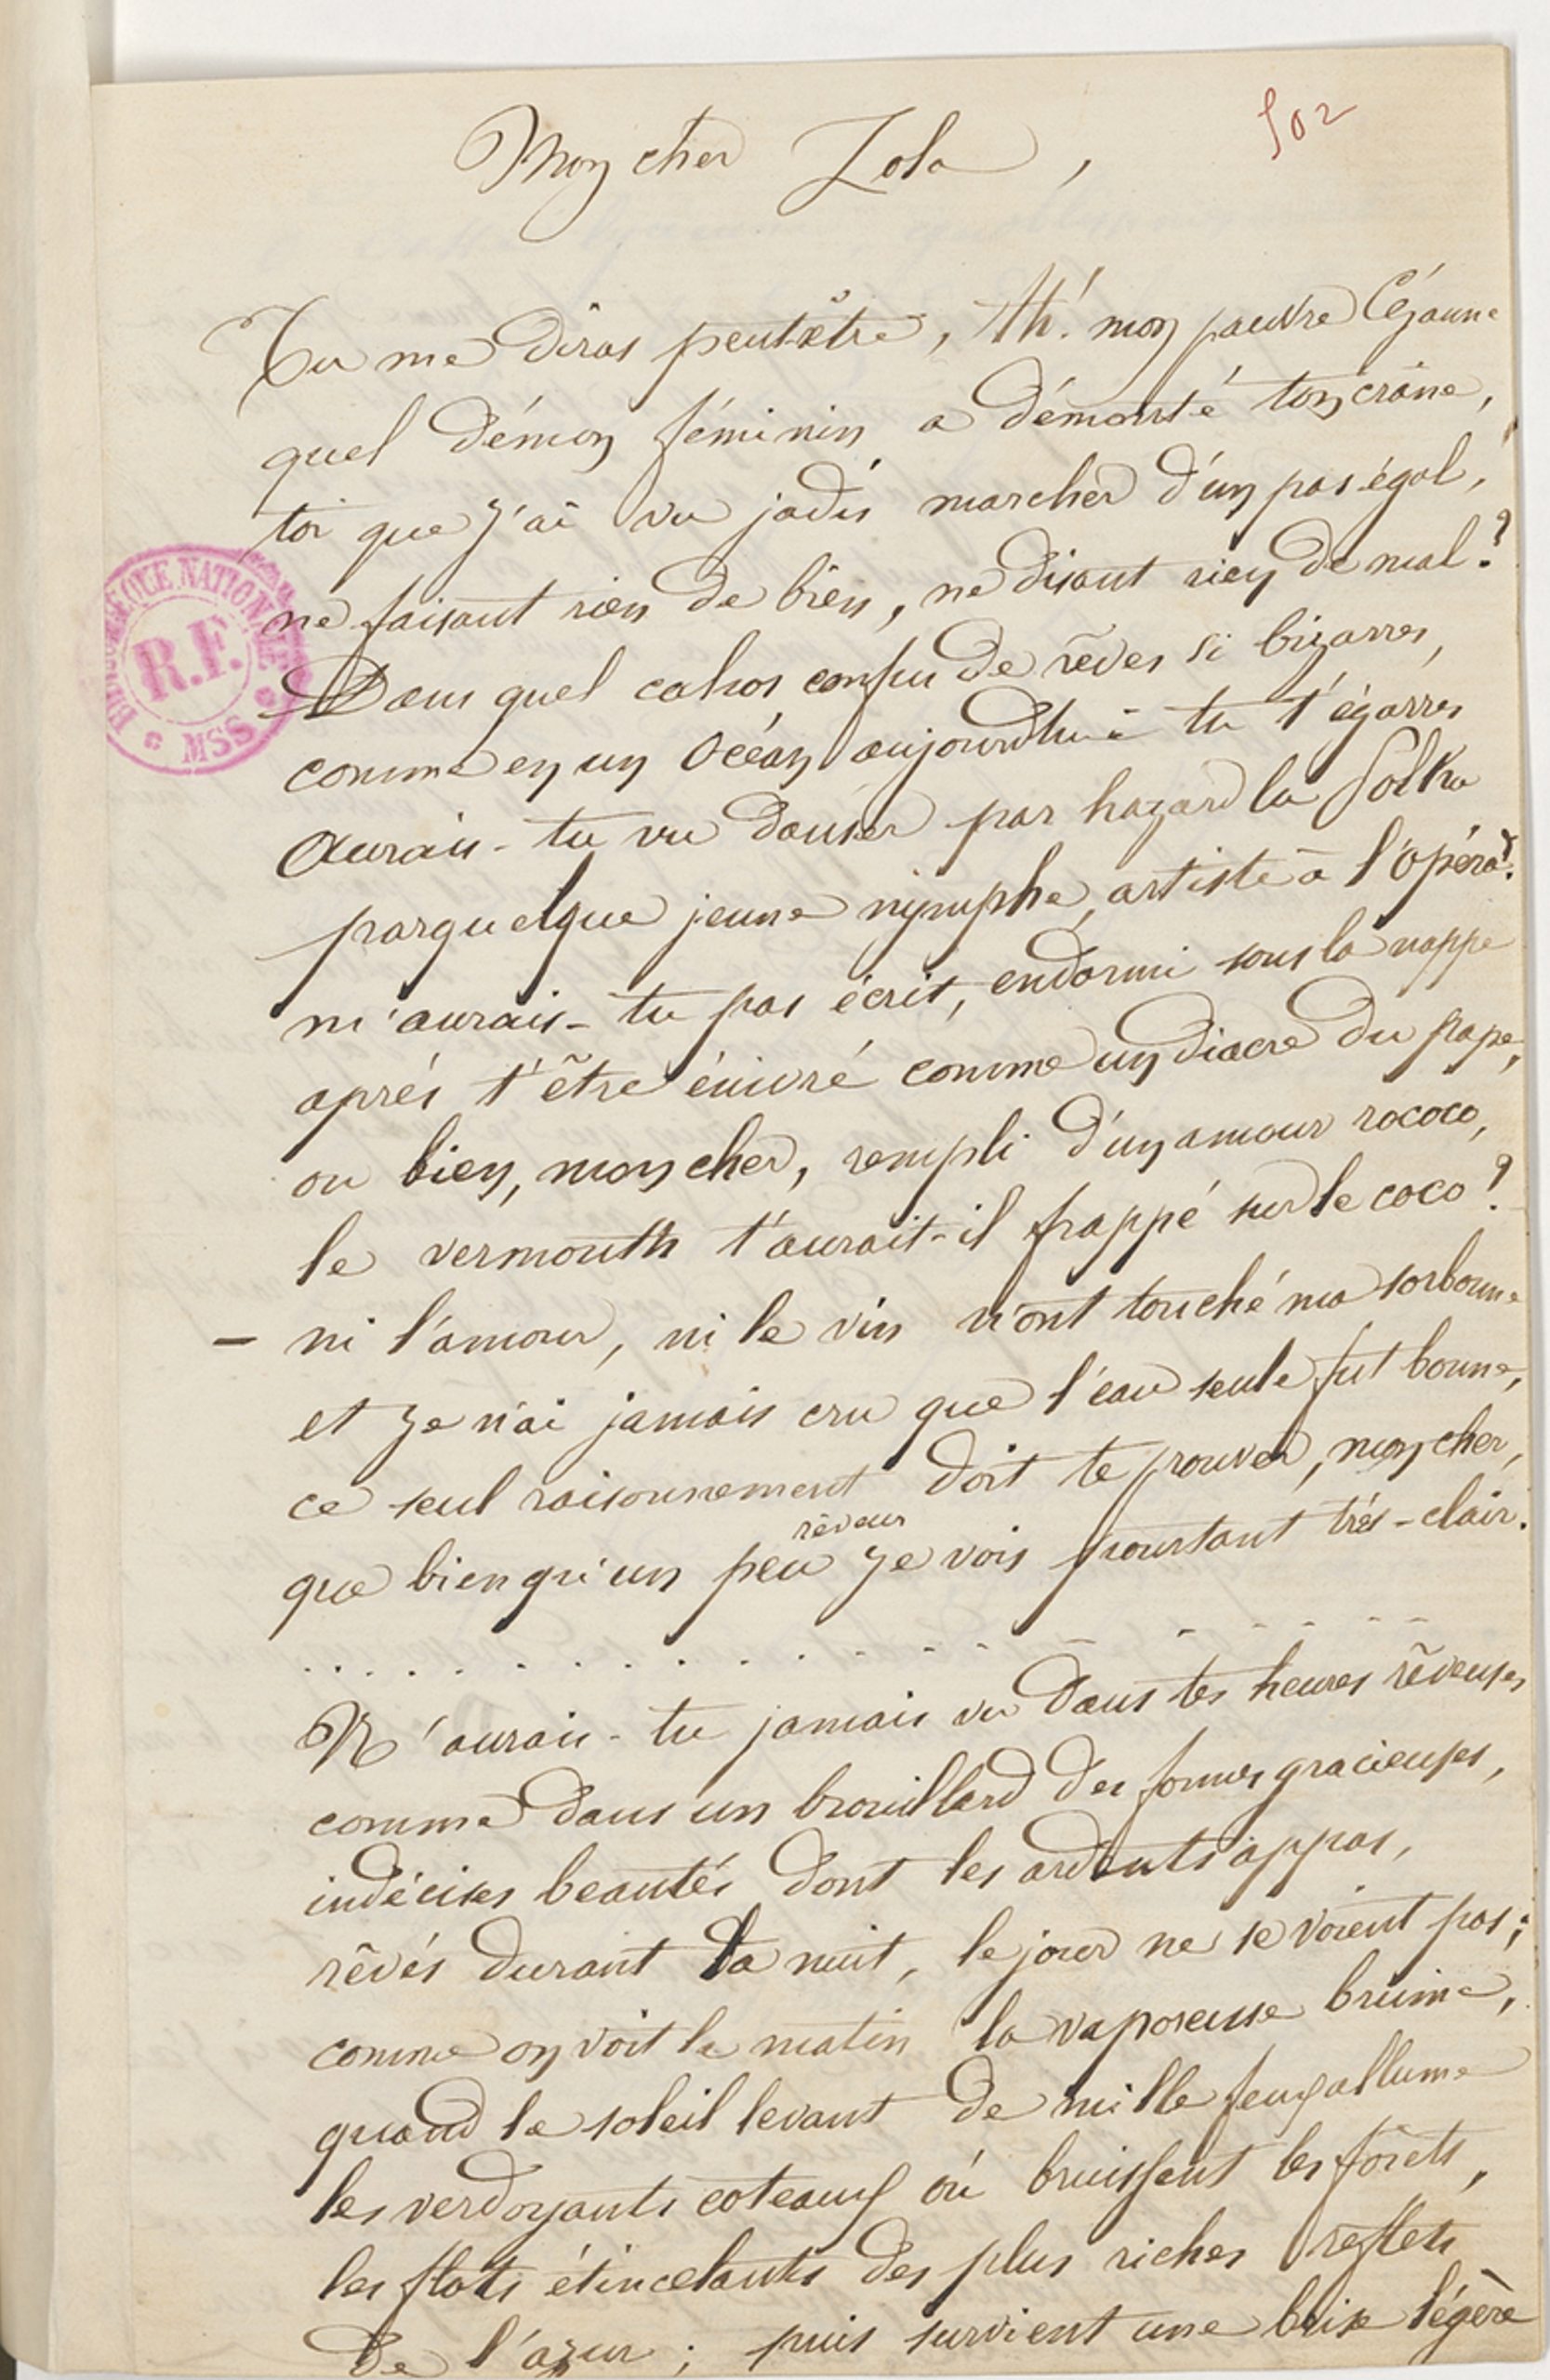 502
Mon cher Zola,
Tu me diras peutêtre, Ah! mon pauvre Cézanne
quel démon féminin a démonté ton crâne,
toi que j'ai vu jadis marcher d'un pas égal,
ne faisant rien de bien, ne disant rien de mal?
BIBLIOTHEQUE NATIONALE
R.F.
MSS
Dans quel cahos confu de rêves si bizarres,
comme en un Océan aujourd'hui tu t'égarres
Aurais-tu vu danser par hazard la Polka
par quelque jeune nymphe, artiste à l'opéra?
m'aurais-tu pas écrit, endormi sous la nappe
aprés t'être énivré comme un diacre du pape,
ou bien, mon cher, rempli d'un amour rococo,
le vermouth t'aurait-il frappé sur le coco?
— ni l'amour, ni le vin n'ont touché ma sorbonne
et je n'ai jamais cru que l'eau seule fut bonne,
ce seul raisonnement doit te prouver, mon cher,
rêveur
que bien qu'un peu je vois pourtant trés-clair.
. . . . . . . . . . . . - - - - - - - -
N'aurais-tu jamais vu dans tes heures rêveuses
comme dans un brouillard des formes gracieuses,
indécises beautés dont les ardents appas,
rêvés durant la nuit, le jour ne se voient pas;
comme on voit le matin la vaporeuse brume,
quand le soleil levant de mille feux allume
les verdoyants coteaux où bruissent les forêts,
les flots étincelants des plus riches reflets
de l'azur; puis survient une brise légère